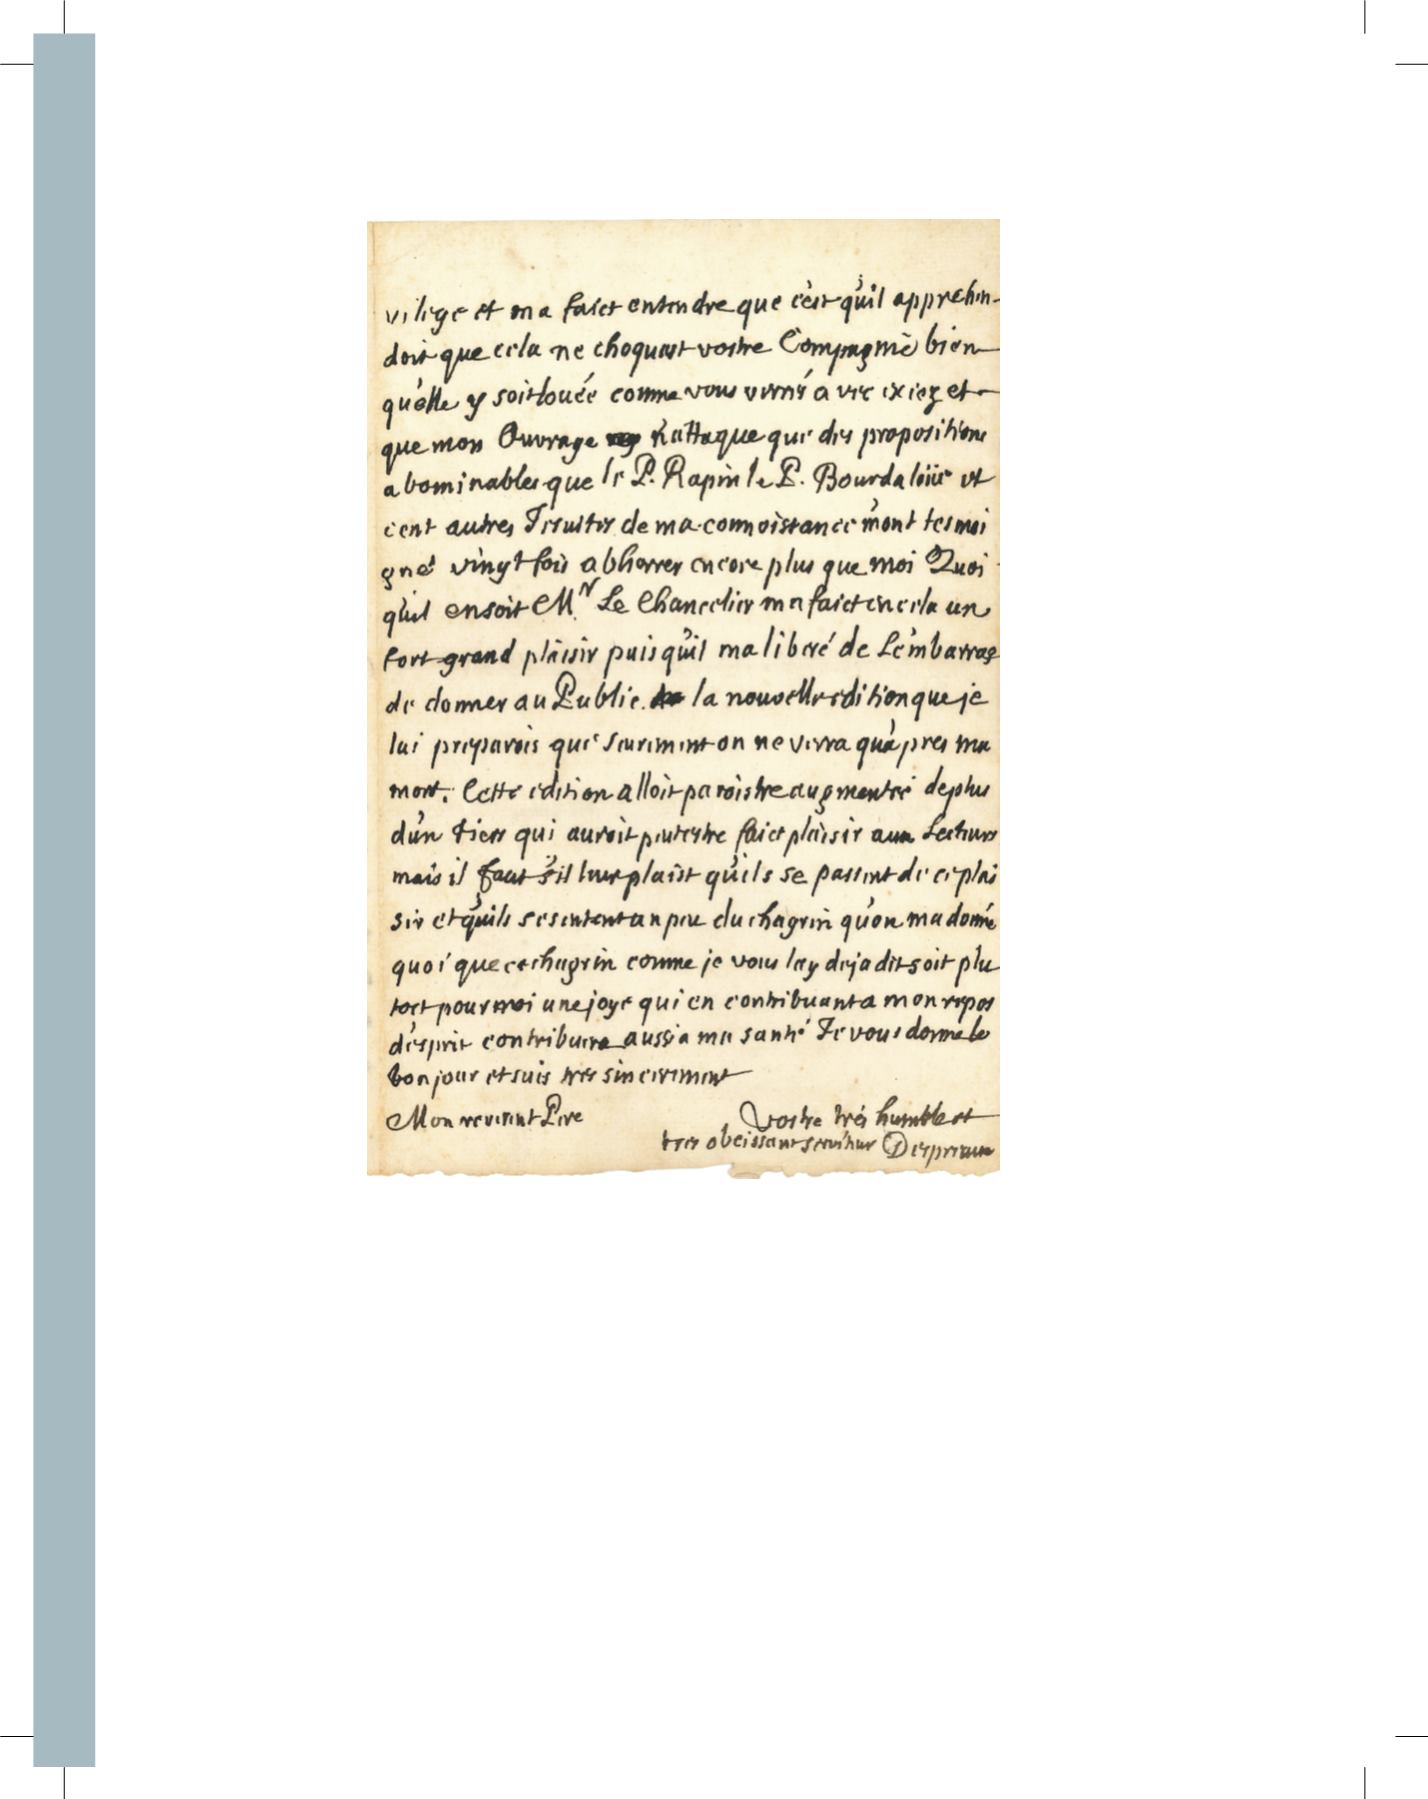 vilege et ma faict entendre que c'est qu'il apprehen-
doit que cela ne choquast vostre Compagnie bien
qu'elle y soit louée comme vous verrés avec et
que mon Ouvrage n'attaque que des propositions
abominables que le P. Rapin le P. Bourdaloüe et
cent autres Jesuites de ma connoissance m'ont tesmoi
gné vingt fois abhorrer encore plus que moi Quoi
qu'il en soit Mr Le Chancelier ma faict en cela un
fort grand plaisir puisqu'il ma liberé de L'embarras
de donner au Public la nouvelle edition que je
lui preparois que seurement on ne verra qu'apres ma
mort. Cette edition alloit paroistre augmentée de plus
d'un Tiers qui auroit peutestre faict plaisir aux Lecteurs
mais il faut s'il leur plaist qu'ils se passent de ce plai
sir et qu'ils se sentent un peu du chagrin qu'on ma donné
quoi que ce chagrin comme je vous lay deja dit soit plu
tost pour moi une joye qui en contribuant a mon repos
d'esprit contribuera aussi a ma santé Je vous donne le
bonjour et suis tres sincerement
Mon reverent Pere
Vostre trés humble et
tres obeissant serviteur Despreaux